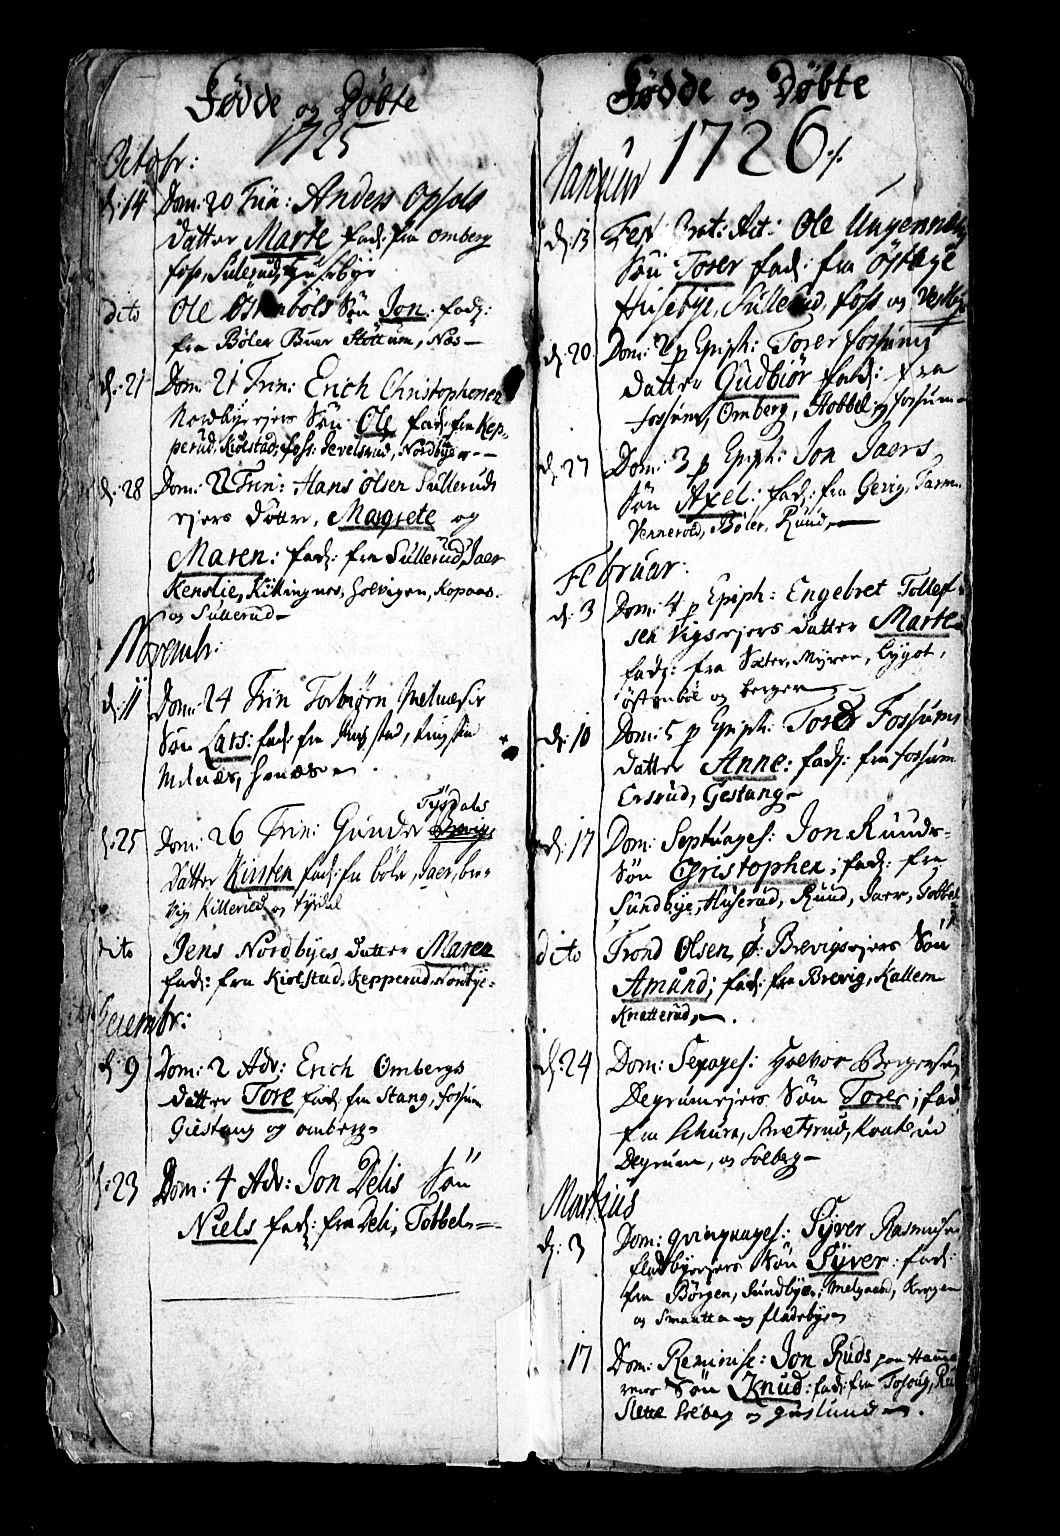 Fødde og Døbte
1725
Octobr:
d: 14 Dom: 20 Trin: Anders Opsals
datter Marte fad: fra Omberg
foss, Sulerud, Husebye
dito Ole Östenböls Sön Jon: fad:
fra Böler Buer Stöttum, Næs
d: 21 Dom: 21 Trin: Erich Christophersen
Nordbyeejers Sön Ole fad: fra Kep-
perud, Kiolstad, foss: Revelsrud, Nordbye
d: 28 Dom: 22 Trin: Hans Olsen Sullerud
ejers döttre, Margrete og
Maren: fad: fra Sullerud, Jaer
Kenslie, Killingnes, Holvigen, Kopaas
og Sullerud
Novembr:
d: 11 Dom: 24 Trin Torbiörn Melnæs
Sön Lars: fad: fra
Melnæs, Henæs
Tysdals
d: 25 Dom: 26 Trin: Gunder
datter Kirsten fad: fra böler, Jaer, bre-
vig Killerud og Tysdal
dito Jens Nordbyes datter Maren
fad: fra Kiolstad, Kepperud, Nordbye
Decembr:
d: 9 Dom: 2 Adv: Erich Ombergs
datter Tore fad: fra Stang, fossum
Giestang og omberg
d: 23 Dom: 4 Adv: Jon Delis Sön
Niels fad: fra Deli, Tobbel
Fødde og Døbte
1726
Januar
d: 13 Fest: Ole
Sön Torer fad: fra Östbye
Husebye, Sullerud, foss og Vestbye
d: 20 Dom: 2 p Epiph: Torer Fossums
datter Gudbiör fad: fra
fossum, Omberg, Hobbel og fossum
d: 27 Dom: 3 p Epiph: Jon Jaers
Sön Axel: fad: fra Gevig,
Vennerold, Böler, Ruud
Februar:
d: 3 Dom: 4 p Epiph: Engebret Tollef-
sen Vigsejers datter Marte
fad: fra Sæter, Myren, Lyget,
östenböl og berger
d: 10 Dom: 5 p Epiph: Torer Fossums
datter Anne: fad: fra fossum
Ersrud, Gestang
d: 17 Dom: Septuages: Jon Ruuds
Sön Christopher; fad: fra
Sundbye, Huserud, Ruud, Jaer, Tobbel
dito Trond Olsen Ö: Brevigsejers Sön
Amund; fad: fra Brevig, Kallem
Knatterud
d: 24 Dom: Sexages: Halvor Bergersen
Degrumejers Sön Torer; fad
fra Schure, Knatterud,
Degrum, og Solberg
Martius
d: 3 Dom: qvinquages: Syver Rasmusen
fladbyeejers Sön Syver: fad:
fra Börgen, Sundbye, Melgaard, Krogen
og Smautten og fladebye
17 Dom: Reminisc: Jon Ruds paa
Sön Knud: fad: fra
Slette Solberg og